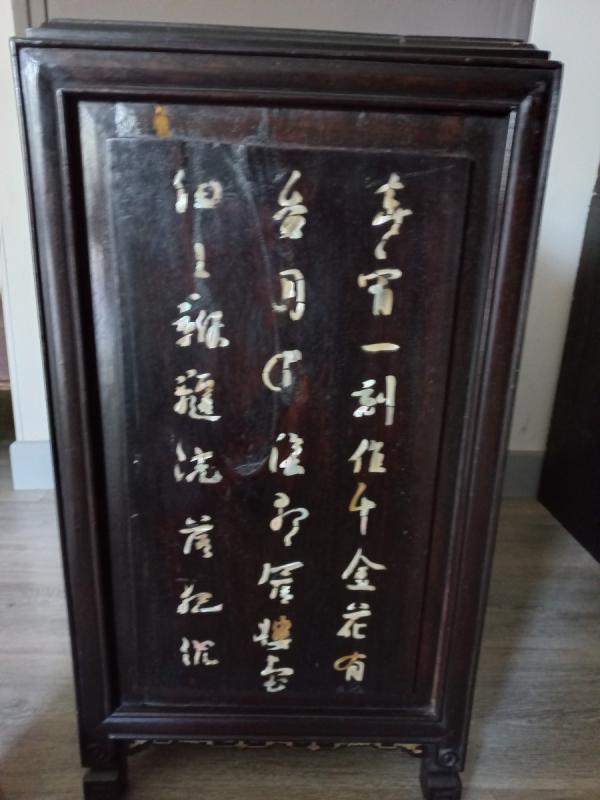 春宵一刻值千金花有
香月陰歌管樓臺
細鞦韆院落